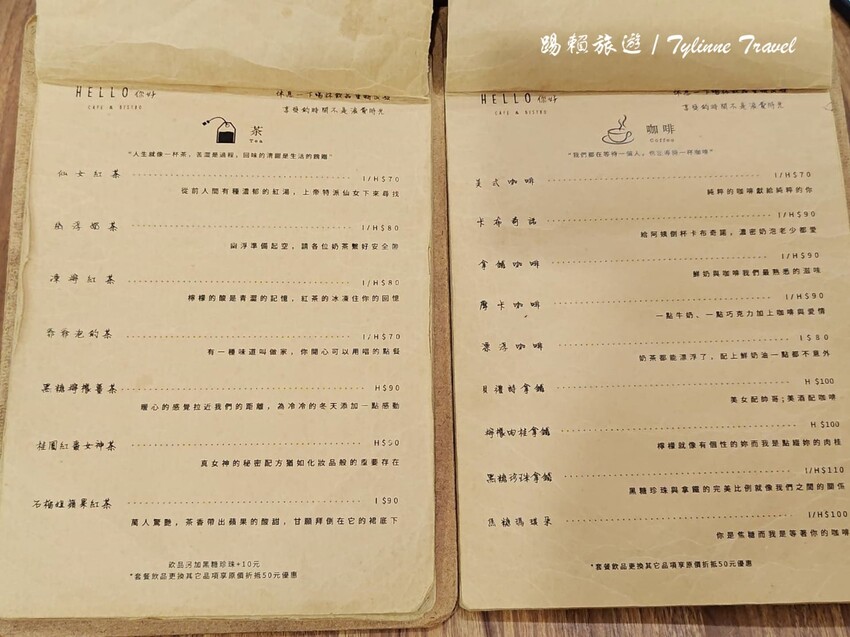 踢賴旅遊 / Tylinne Travel
HELLO 你好
CAFE & BISTRO
享受的時間不是浪費時光
茶
Tea
"人生就像一杯茶，苦澀是過程，回味的清甜是生活的饋贈"
仙女紅茶 I/H$70
從前人間有種濃郁的紅湯，上帝特派仙女下來尋找
幽浮奶茶 I/H$80
幽浮準備起空，請各位奶茶繫好安全帶
凍檸紅茶 I/H$80
檸檬的酸是青澀的記憶，紅茶的冰凍住你的回憶
乖乖泡的茶 I/H$70
有一種味道叫做家，你開心可以用唱的點餐
黑糖檸檬薑茶 H$90
暖心的感覺拉近我們的距離，為冷冷的冬天添加一點感動
桂圓紅棗女神茶 H$90
真女神的秘密配方猶如化妝品般的重要存在
石榴妞蘋果紅茶 I $90
萬人驚艷，茶香帶出蘋果的酸甜，甘願拜倒在它的裙底下
飲品可加黑糖珍珠+10元
*套餐飲品更換其它品項享原價折抵50元優惠
HELLO 你好
CAFE & BISTRO
享受的時間不是浪費時光
咖啡
Coffee
"我們都在等待一個人，
美式咖啡 I/H$70
純粹的咖啡獻給純粹的你
卡布奇諾 I/H$90
給阿姨倒杯卡布奇諾，濃密奶泡老少都愛
拿鐵咖啡 I/H$90
鮮奶與咖啡我們最熟悉的滋味
摩卡咖啡 I/H$90
一點牛奶、一點巧克力加上咖啡與愛情
漂浮咖啡 I $80
奶茶都能漂浮了，配上鮮奶油一點都不意外
貝禮詩拿鐵 H $100
美女配帥哥;美酒配咖啡
檸檬肉桂拿鐵 H $100
檸檬就像有個性的妳而我是點綴妳的肉桂
黑糖珍珠拿鐵 I/H$110
黑糖珍珠與拿鐵的完美比例就像我們之間的關係
焦糖瑪琪朵 I/H$100
你是焦糖而我是等著你的咖啡
*套餐飲品更換其它品項享原價折抵50元優惠